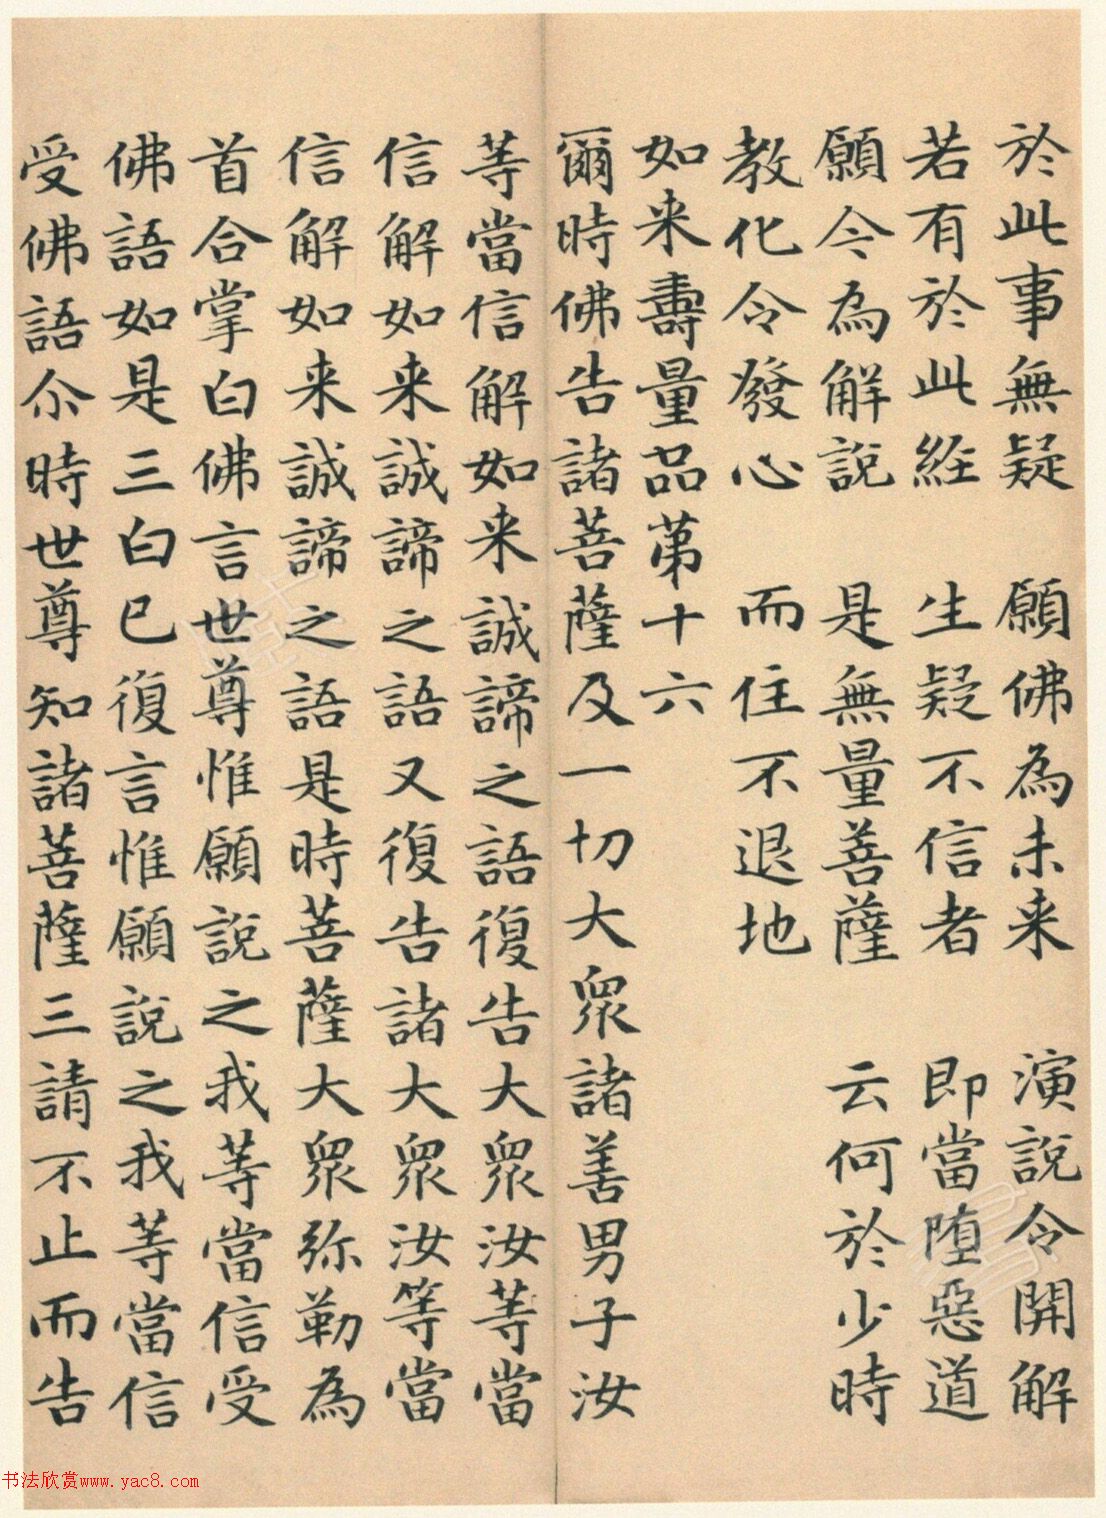 於此事無疑　願佛為未来　演說令開解
若有於此経　生疑不信者　即當堕惡道
願今為解説　是無量菩薩　云何於少時
教化令發心　而住不退地
如来壽量品第十六
爾時佛告諸菩薩及一切大眾諸善男子汝
等當信解如来誠諦之語復告大眾汝等當
信解如来誠諦之語又復告諸大眾汝等當
信解如来誠諦之語是時菩薩大眾弥勒為
首合掌白佛言世尊惟願說之我等當信受
佛語如是三白已復言惟願說之我等當信
受佛語尒時世尊知諸菩薩三請不止而告
书法欣赏www.yac8.com